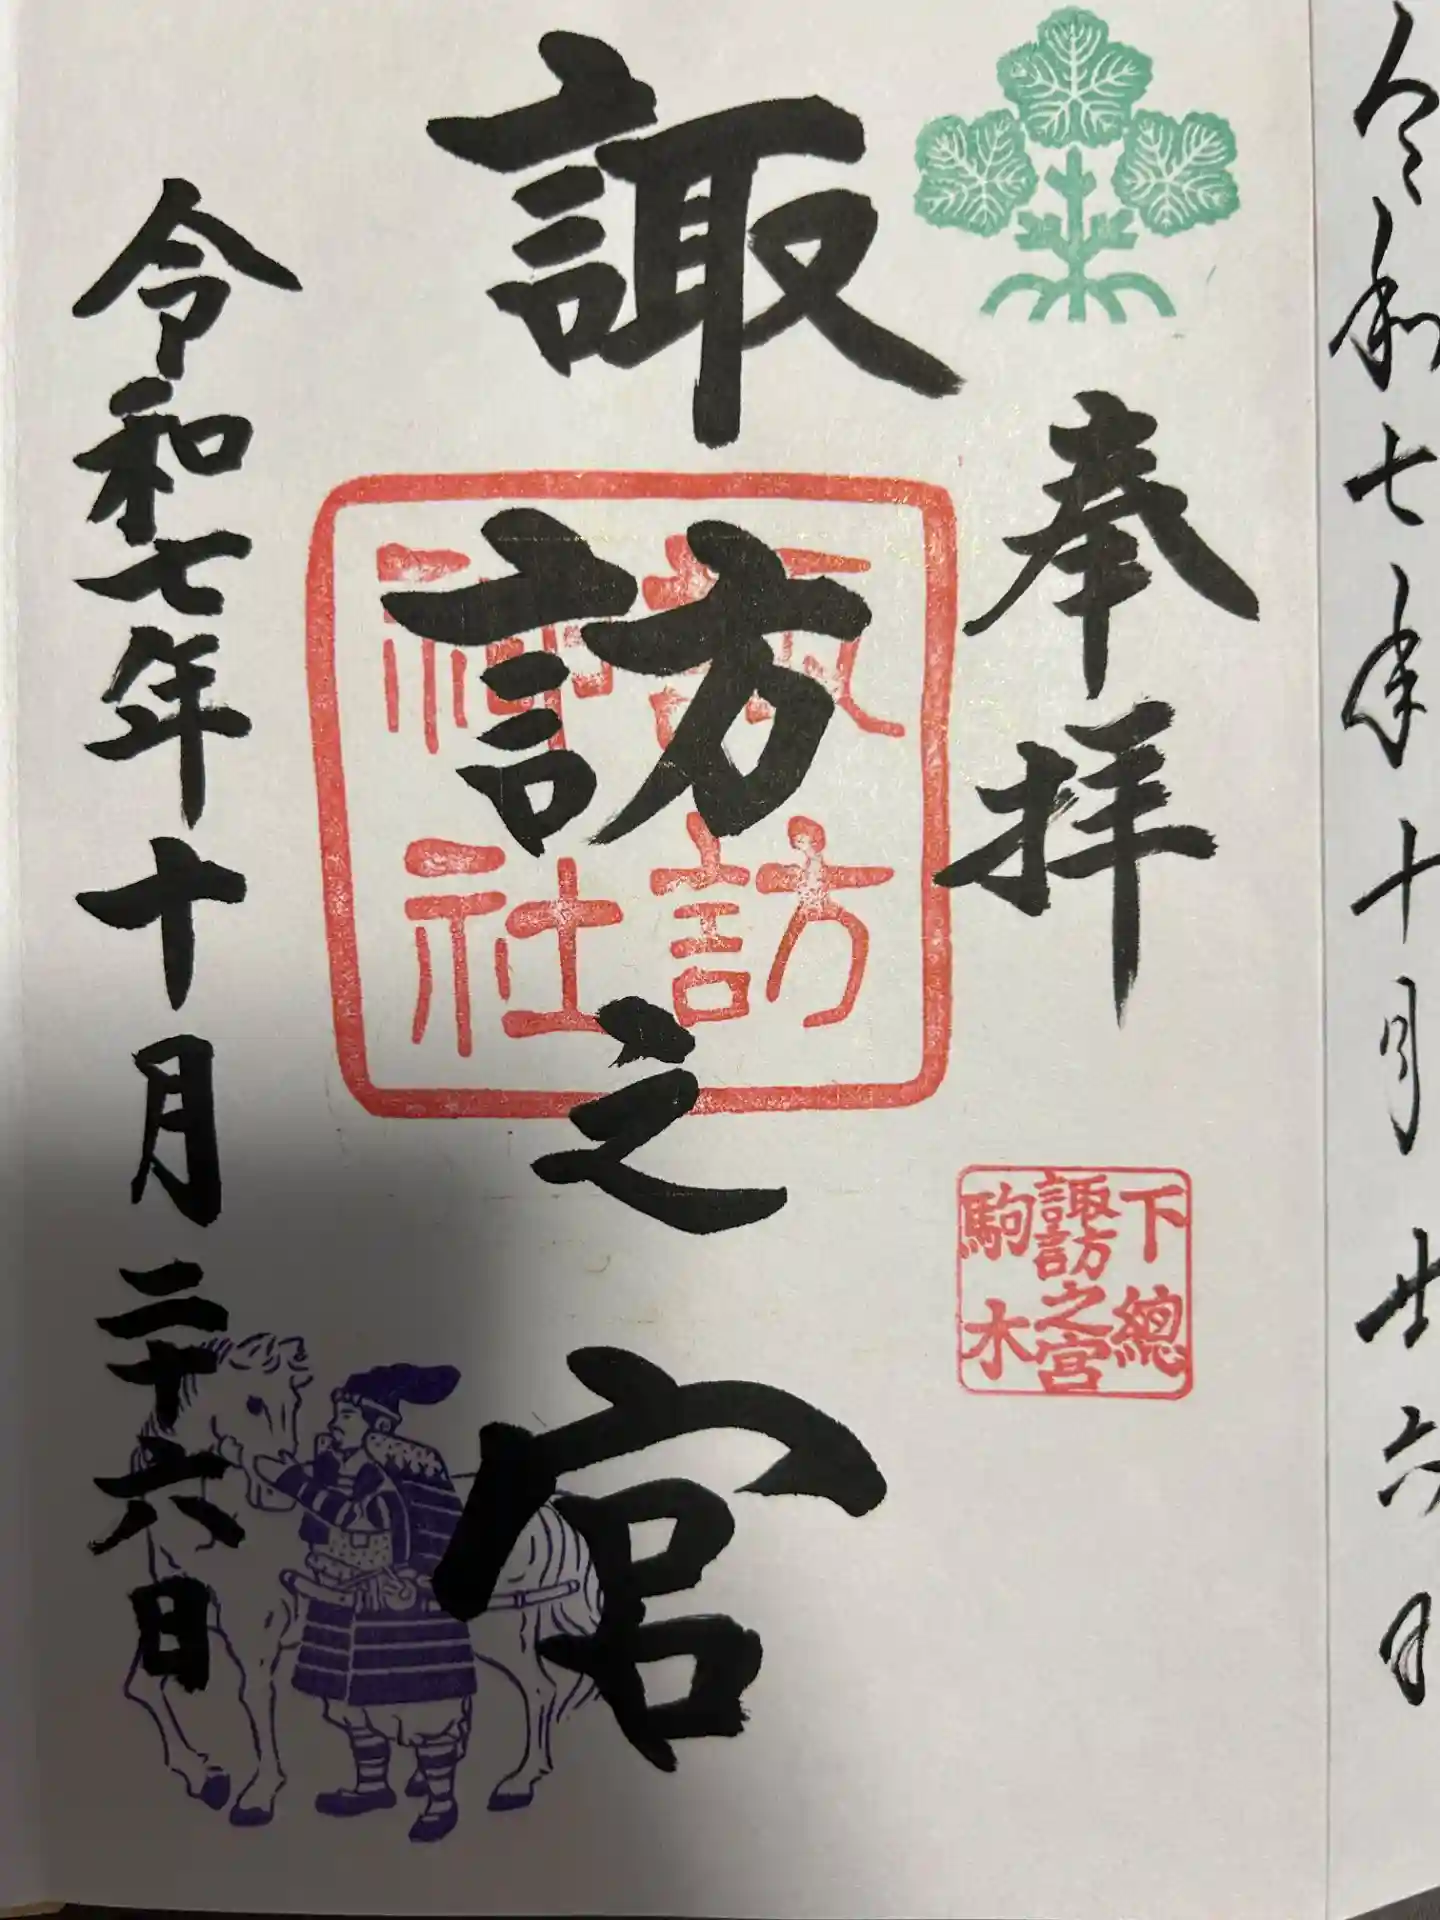 令和七年十月廿六日
奉拝
下總
諏訪之宮
駒木
諏訪之宮
諏訪
神社
令和七年十月二十六日